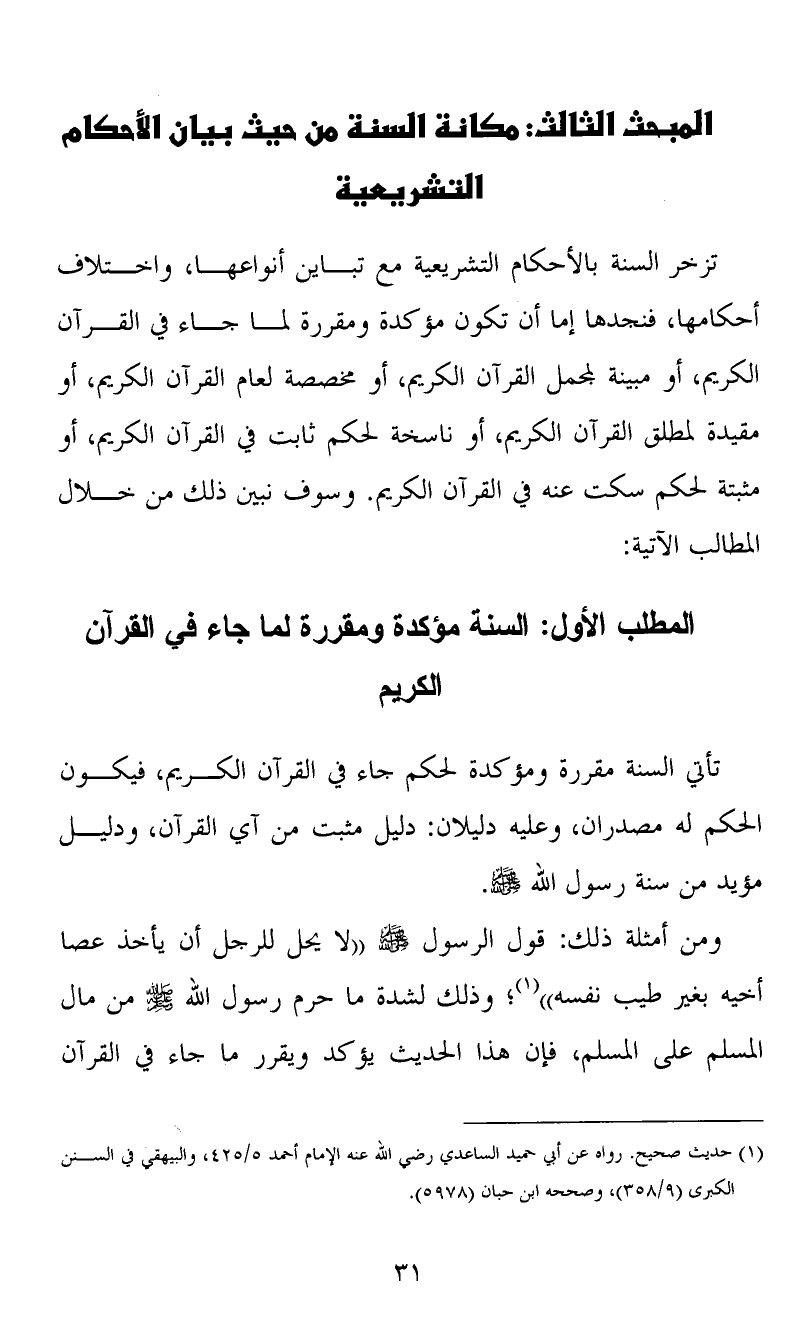 المبحث الثالث: مكانة السنة من حيث بيان الأحكام
التشريعية
تزخر السنة بالأحكام التشريعية مع تباين أنواعها، واختلاف
أحكامها، فنجدها إما أن تكون مؤكدة ومقررة لما جاء في القرآن
الكريم، أو مبينة لمجمل القرآن الكريم، أو مخصصة لعام القرآن الكريم، أو
مقيدة لمطلق القرآن الكريم، أو ناسخة لحكم ثابت في القرآن الكريم، أو
مثبتة لحكم سكت عنه في القرآن الكريم. وسوف نبين ذلك من خلال
المطالب الآتية:
المطلب الأول: السنة مؤكدة ومقررة لما جاء في القرآن
الكريم
تأتي السنة مقررة ومؤكدة لحكم جاء في القرآن الكريم، فيكون
الحكم له مصدران، وعليه دليلان: دليل مثبت من آي القرآن، ودليل
مؤيد من سنة رسول الله ﷺ.
ومن أمثلة ذلك: قول الرسول ﷺ ((لا يحل للرجل أن يأخذ عصا
أخيه بغير طيب نفسه))(١)؛ وذلك لشدة ما حرم رسول الله ﷺ من مال
المسلم على المسلم، فإن هذا الحديث يؤكد ويقرر ما جاء في القرآن
(١) حديث صحيح. رواه عن أبي حميد الساعدي رضي الله عنه الإمام أحمد ٤٢٥/٥، والبيهقي في السنن
الكبرى (٣٥٨/٩)، وصححه ابن حبان (٥٩٧٨).
٣١